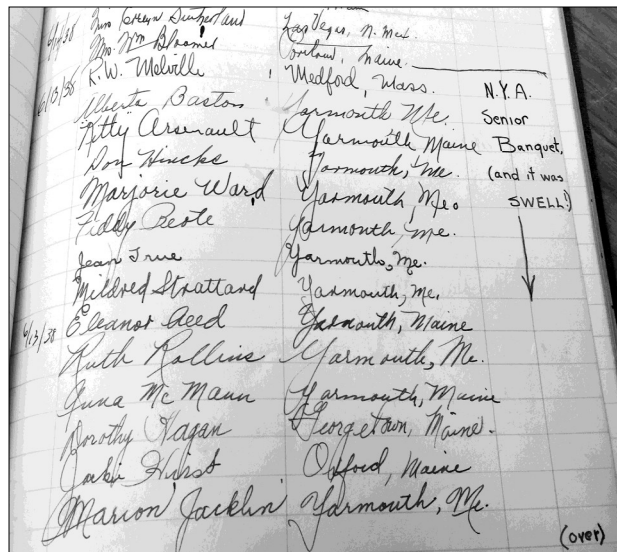 6/1/38 Miss Evelyn Sutherland Las Vegas, N. Mex.
Mrs. Wm Bloomer Portland, Maine.
6/13/38 R.W. Melville Medford, Mass.
Alberta Baston Yarmouth Me.
Kitty Arsenault Yarmouth Maine
Don Hincks Yarmouth, Me.
Marjorie Ward Yarmouth, Me.
Yarmouth, Me.
Jean True Yarmouth, Me.
Mildred Strattard Yarmouth, Me.
6/13/38 Eleanor Reed Yarmouth, Maine
Ruth Rollins Yarmouth, Me.
McMann Yarmouth, Maine
Dorothy Hagan Georgetown, Maine.
Jackie Hirst Oxford, Maine
Marion Jacklin Yarmouth, Me.
N.Y.A.
Senior
Banquet,
(and it was
SWELL!)
(over)